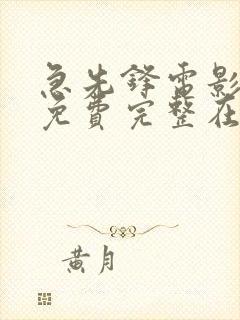 急先锋电影
免费完整在
黄月